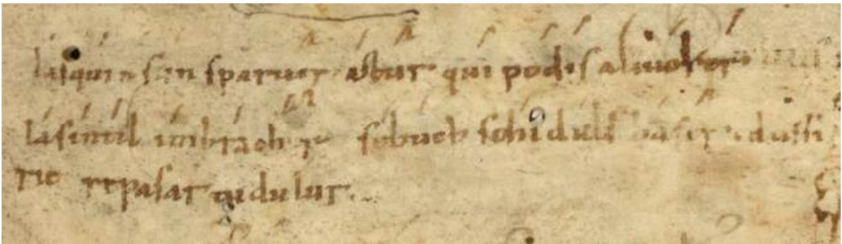 lasqui n sun sparuer astur qui podis aliuoler
lasintil imbracher sebuch schiduls baser e dussi
rie repasar tudulur.